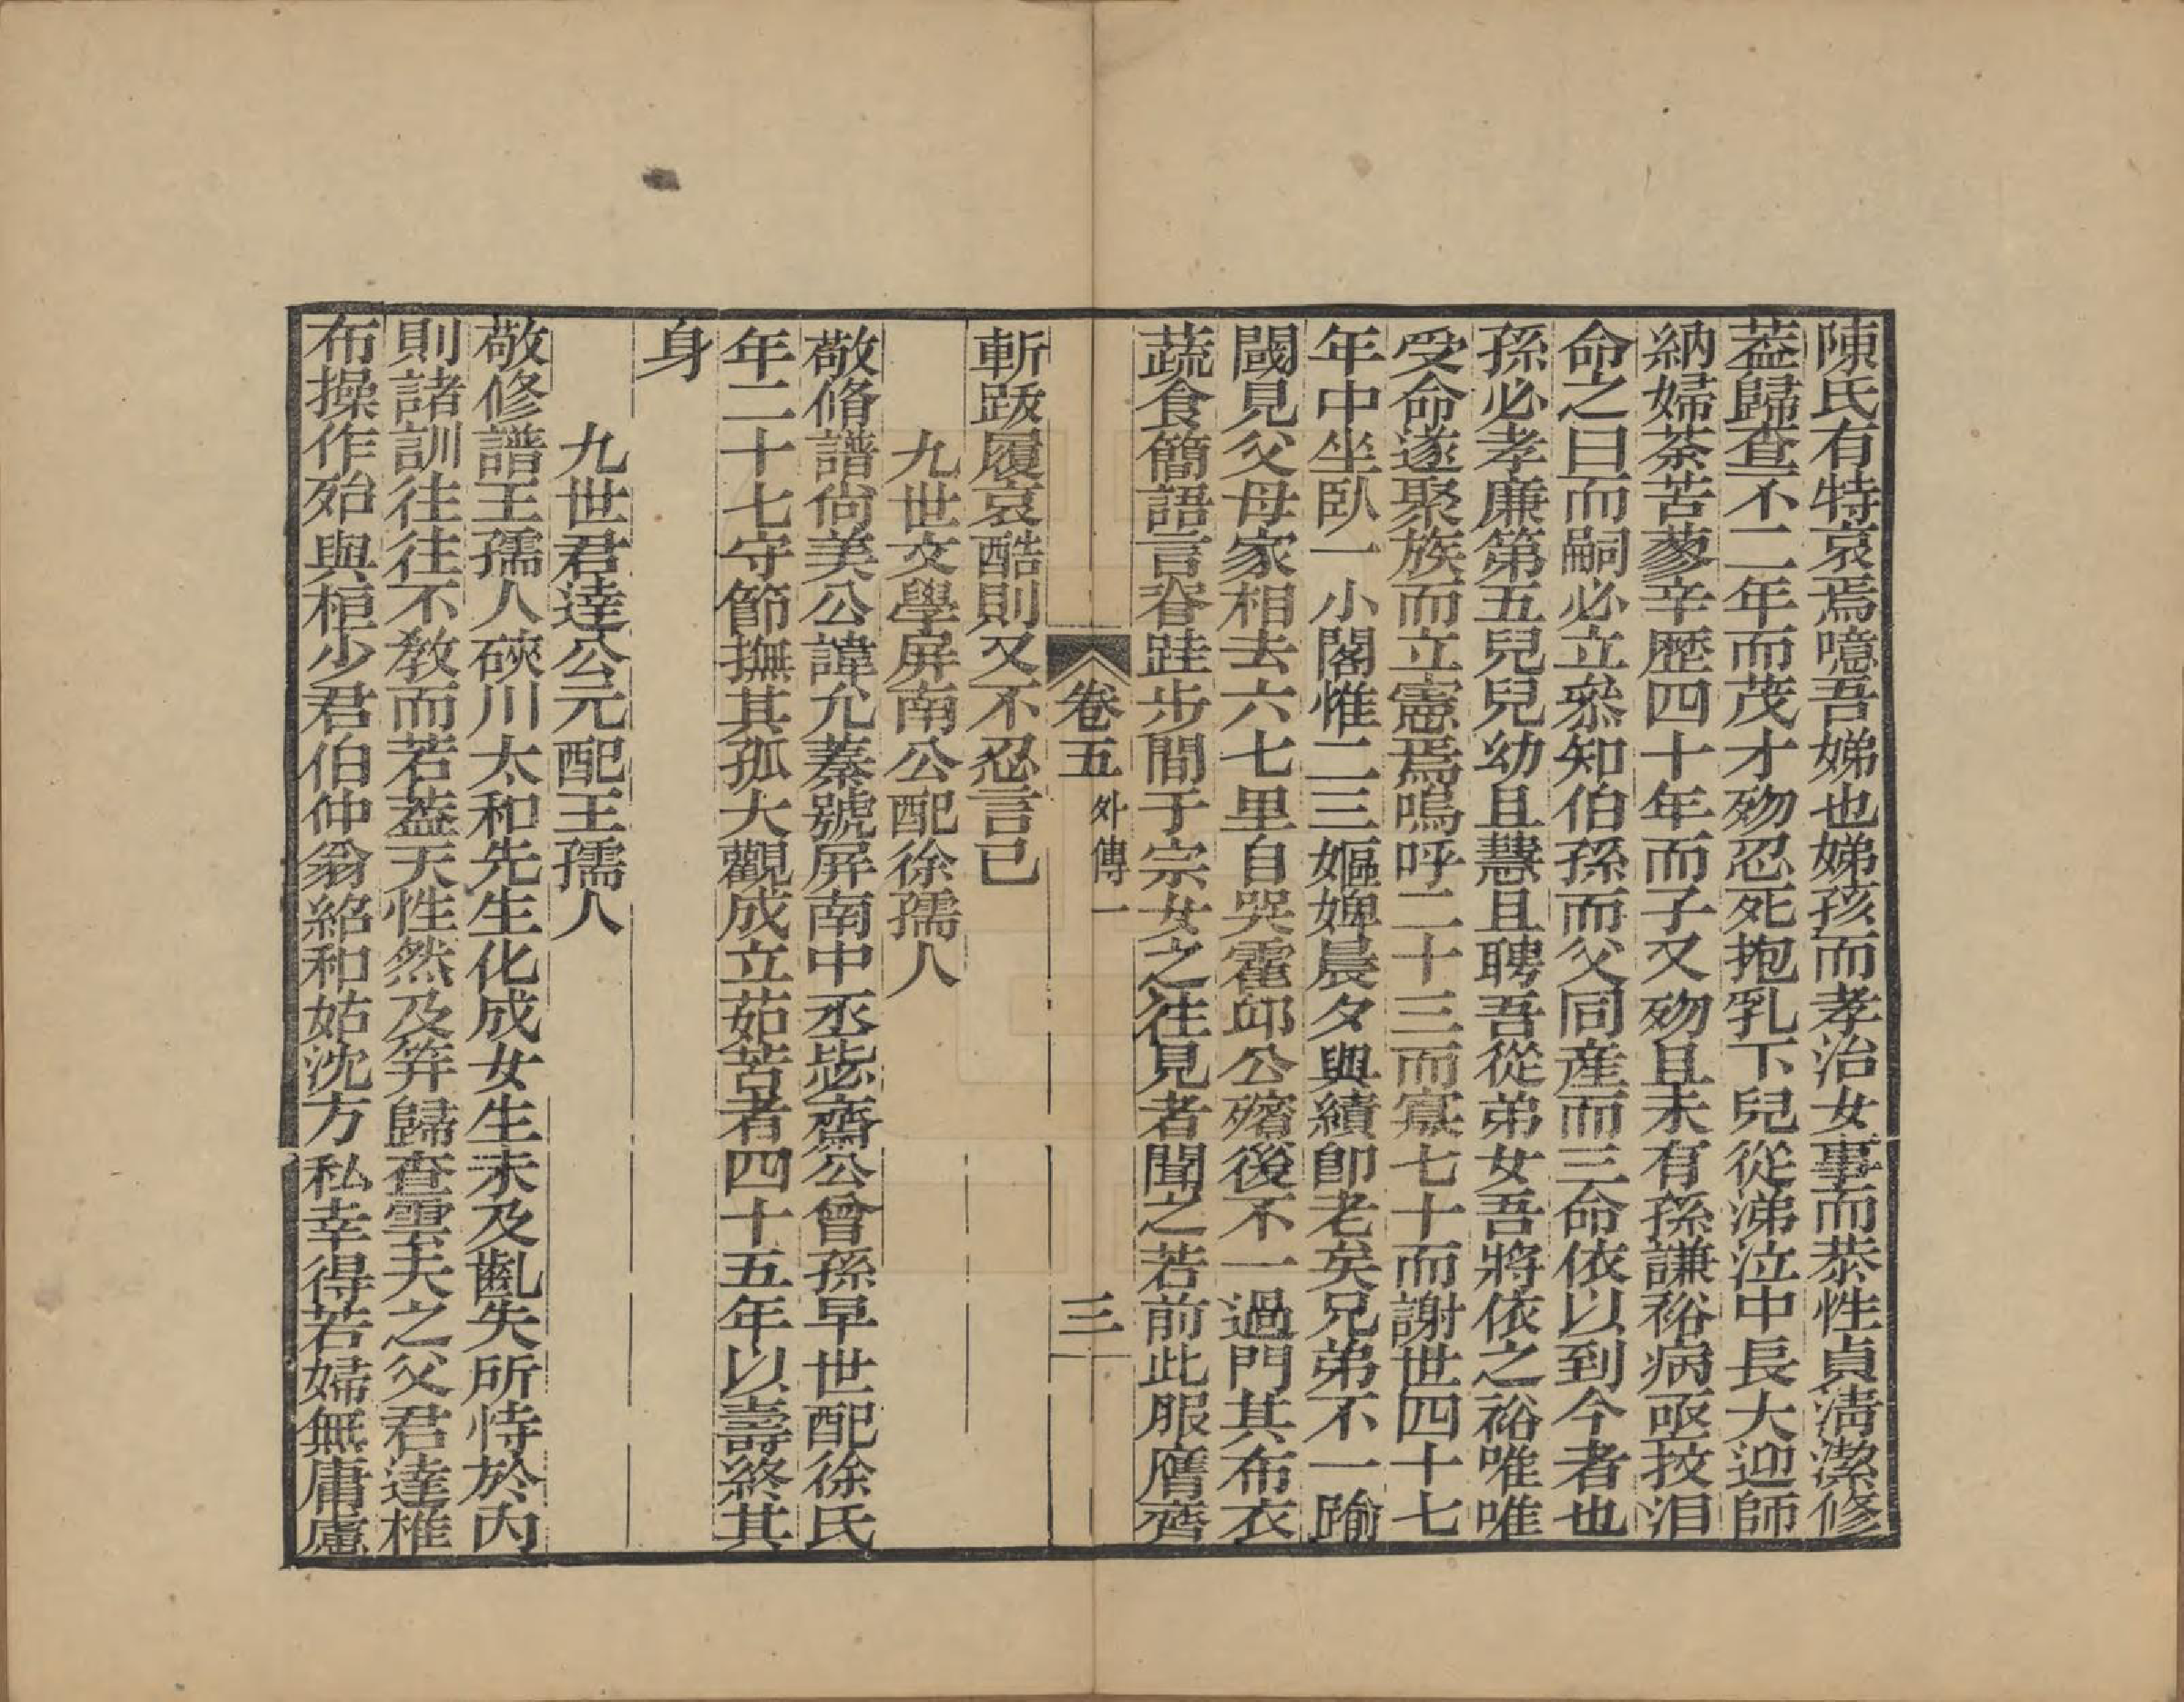 陳氏有特哀焉噫吾娣也娣孩而孝治女事而恭性貞淸潔修
葢歸查不二年而茂才歾忍死抱乳下兒從涕泣中長大迎師
納婦荼苦蓼辛歷四十年而子又歾且未有孫謙裕病亟抆泪
命之曰而嗣必立叅知伯孫而父同產而三命依以到今者也
孫必孝廉第五兒兒幼且慧且聘吾從弟女吾將依之裕唯唯
受命遂聚族而立憲焉嗚呼二十三而寡七十而謝世四十七
年中坐臥一小閣惟二三嫗婢晨夕與績卽老矣兄弟不一踰
閾見父母家相去六七里自哭霍邱公殯後不一過門其布衣
蔬食簡語言眘跬步間于宗女之往見者聞之若前此服膺齊
卷五 外傳一 三
斬跋履哀酷則又不忍言已
九世文學屏南公配徐孺人
敬脩譜尙美公諱允蓁號屏南中丞毖齋公曾孫早世配徐氏
年二十七守節撫其孤大觀成立茹苦者四十五年以壽終其
身
九世君達公元配王孺人
敬修譜王孺人硤川太和先生化成女生未及齓失所恃於內
則諸訓往往不敎而若葢天性然及笄歸查雲夫之父君達椎
布操作殆與桓少君伯仲翁紹和姑沈方私幸得若婦無庸慮